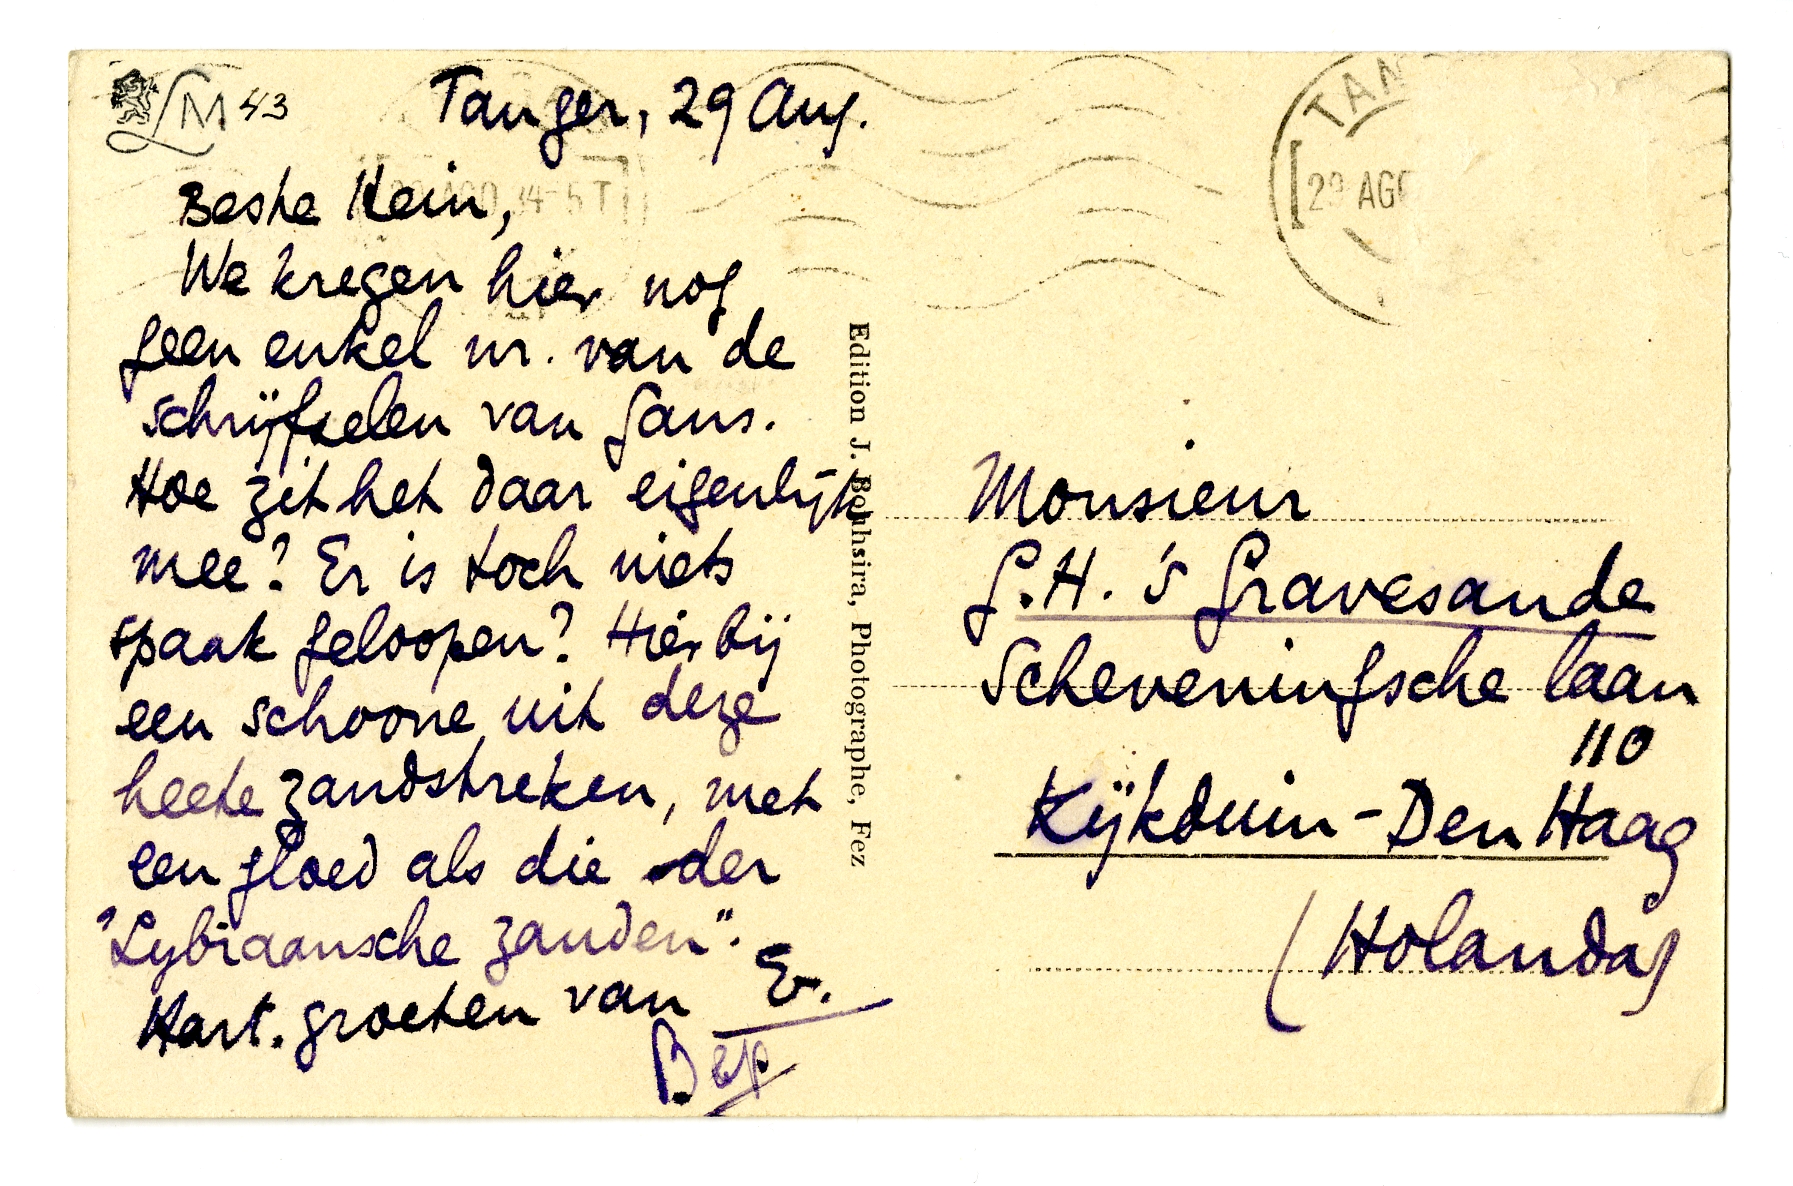 LM 43
Tanger, 29 Aug.
Beste Hein,
We kregen hier nog
geen enkel nr. van de
schrijfselen van Gans.
Hoe zit het daar eigenlijk
mee? Er is toch niets
spaak geloopen? Hierbij
een schoone uit deze
heete zandstreken, met
een gloed als die der
"Lybiaansche zanden".
Hart. groeten van E.
Bep
Edition J. Bouhsira, Photographe, Fez
TAN
29 AGO
34-5T
Monsieur
G.H. 's Gravesande
Scheveningsche laan
110
Kijkduin - Den Haag
(Holanda)